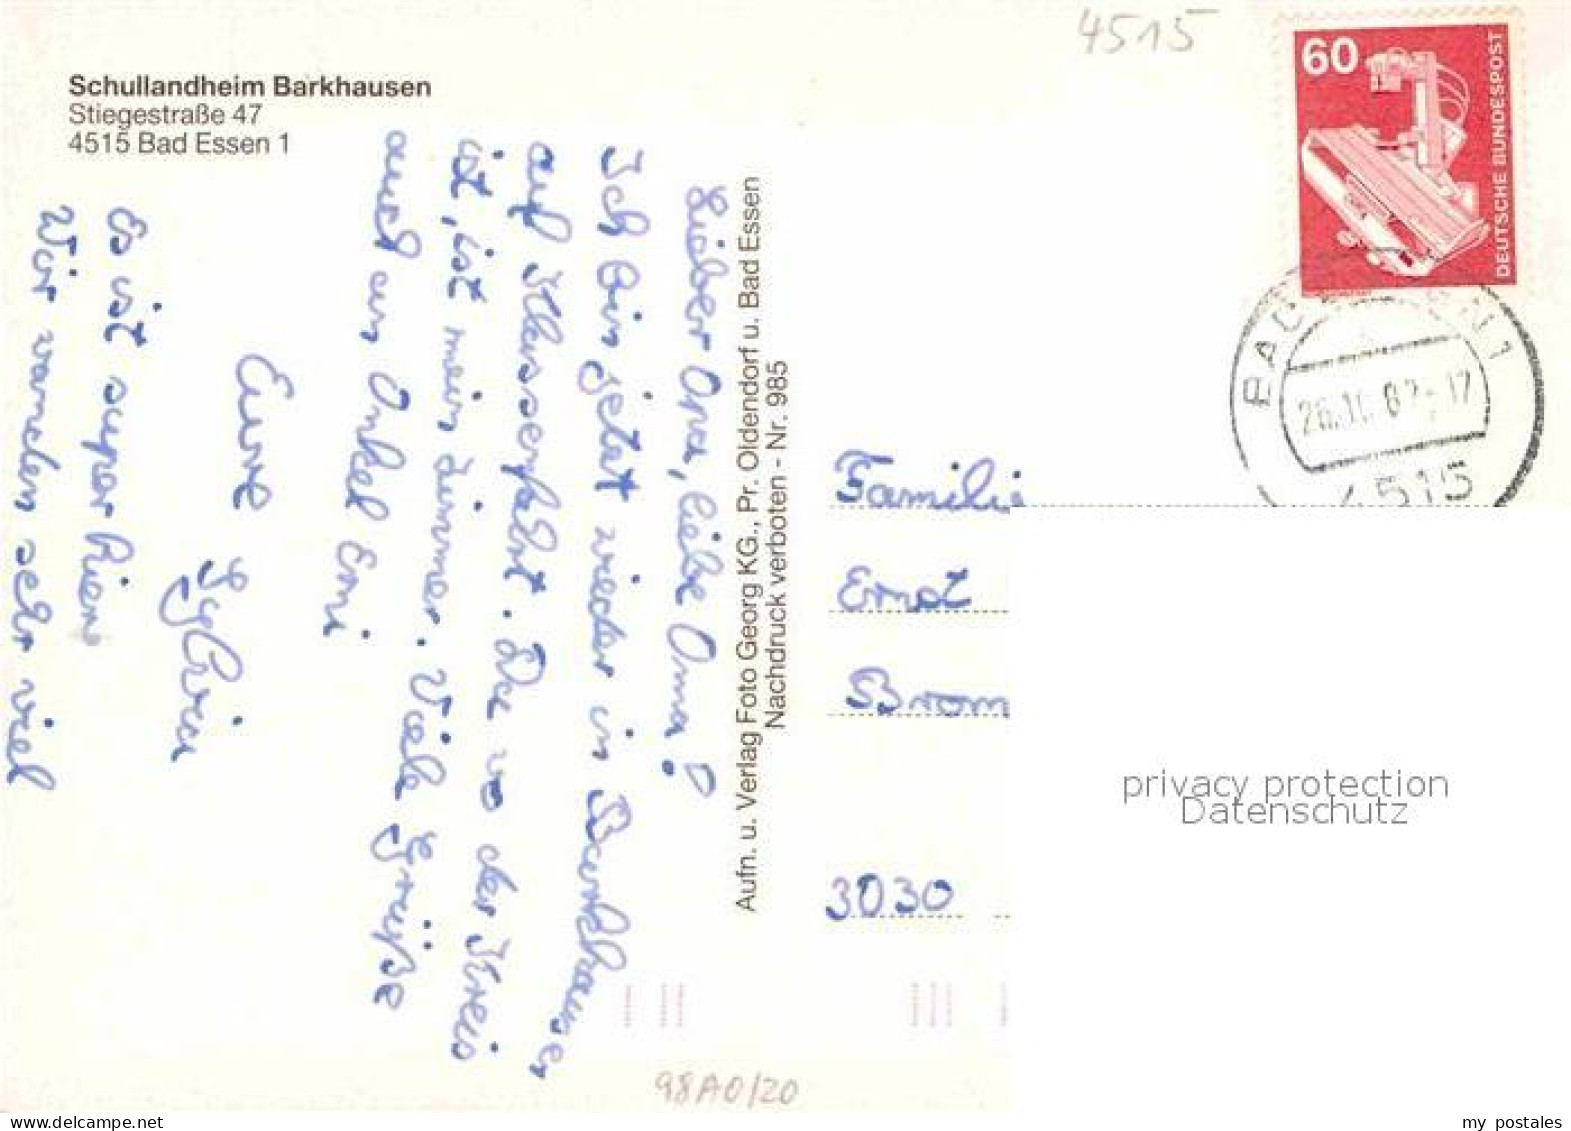 Schullandheim Barkhausen
Stiegestraße 47
4515 Bad Essen 1
Lieber Opa, liebe Oma!
Ich bin jetzt wieder in Barkhausen
auf Klassenfahrt. Da wo der Kreis
ist, ist mein Zimmer. Viele Grüße
auch an Onkel Erni
Eure
Sylvia
Es ist super hier
Wir wandern sehr viel
Aufn. u. Verlag Foto Georg KG., Pr. Oldendorf u. Bad Essen
Nachdruck verboten - Nr. 985
4515
60
DEUTSCHE BUNDESPOST
BAD ESSEN 1
4515
Familie
Ernst
Brom
3030
privacy protection
Datenschutz
98A0/20
my postales